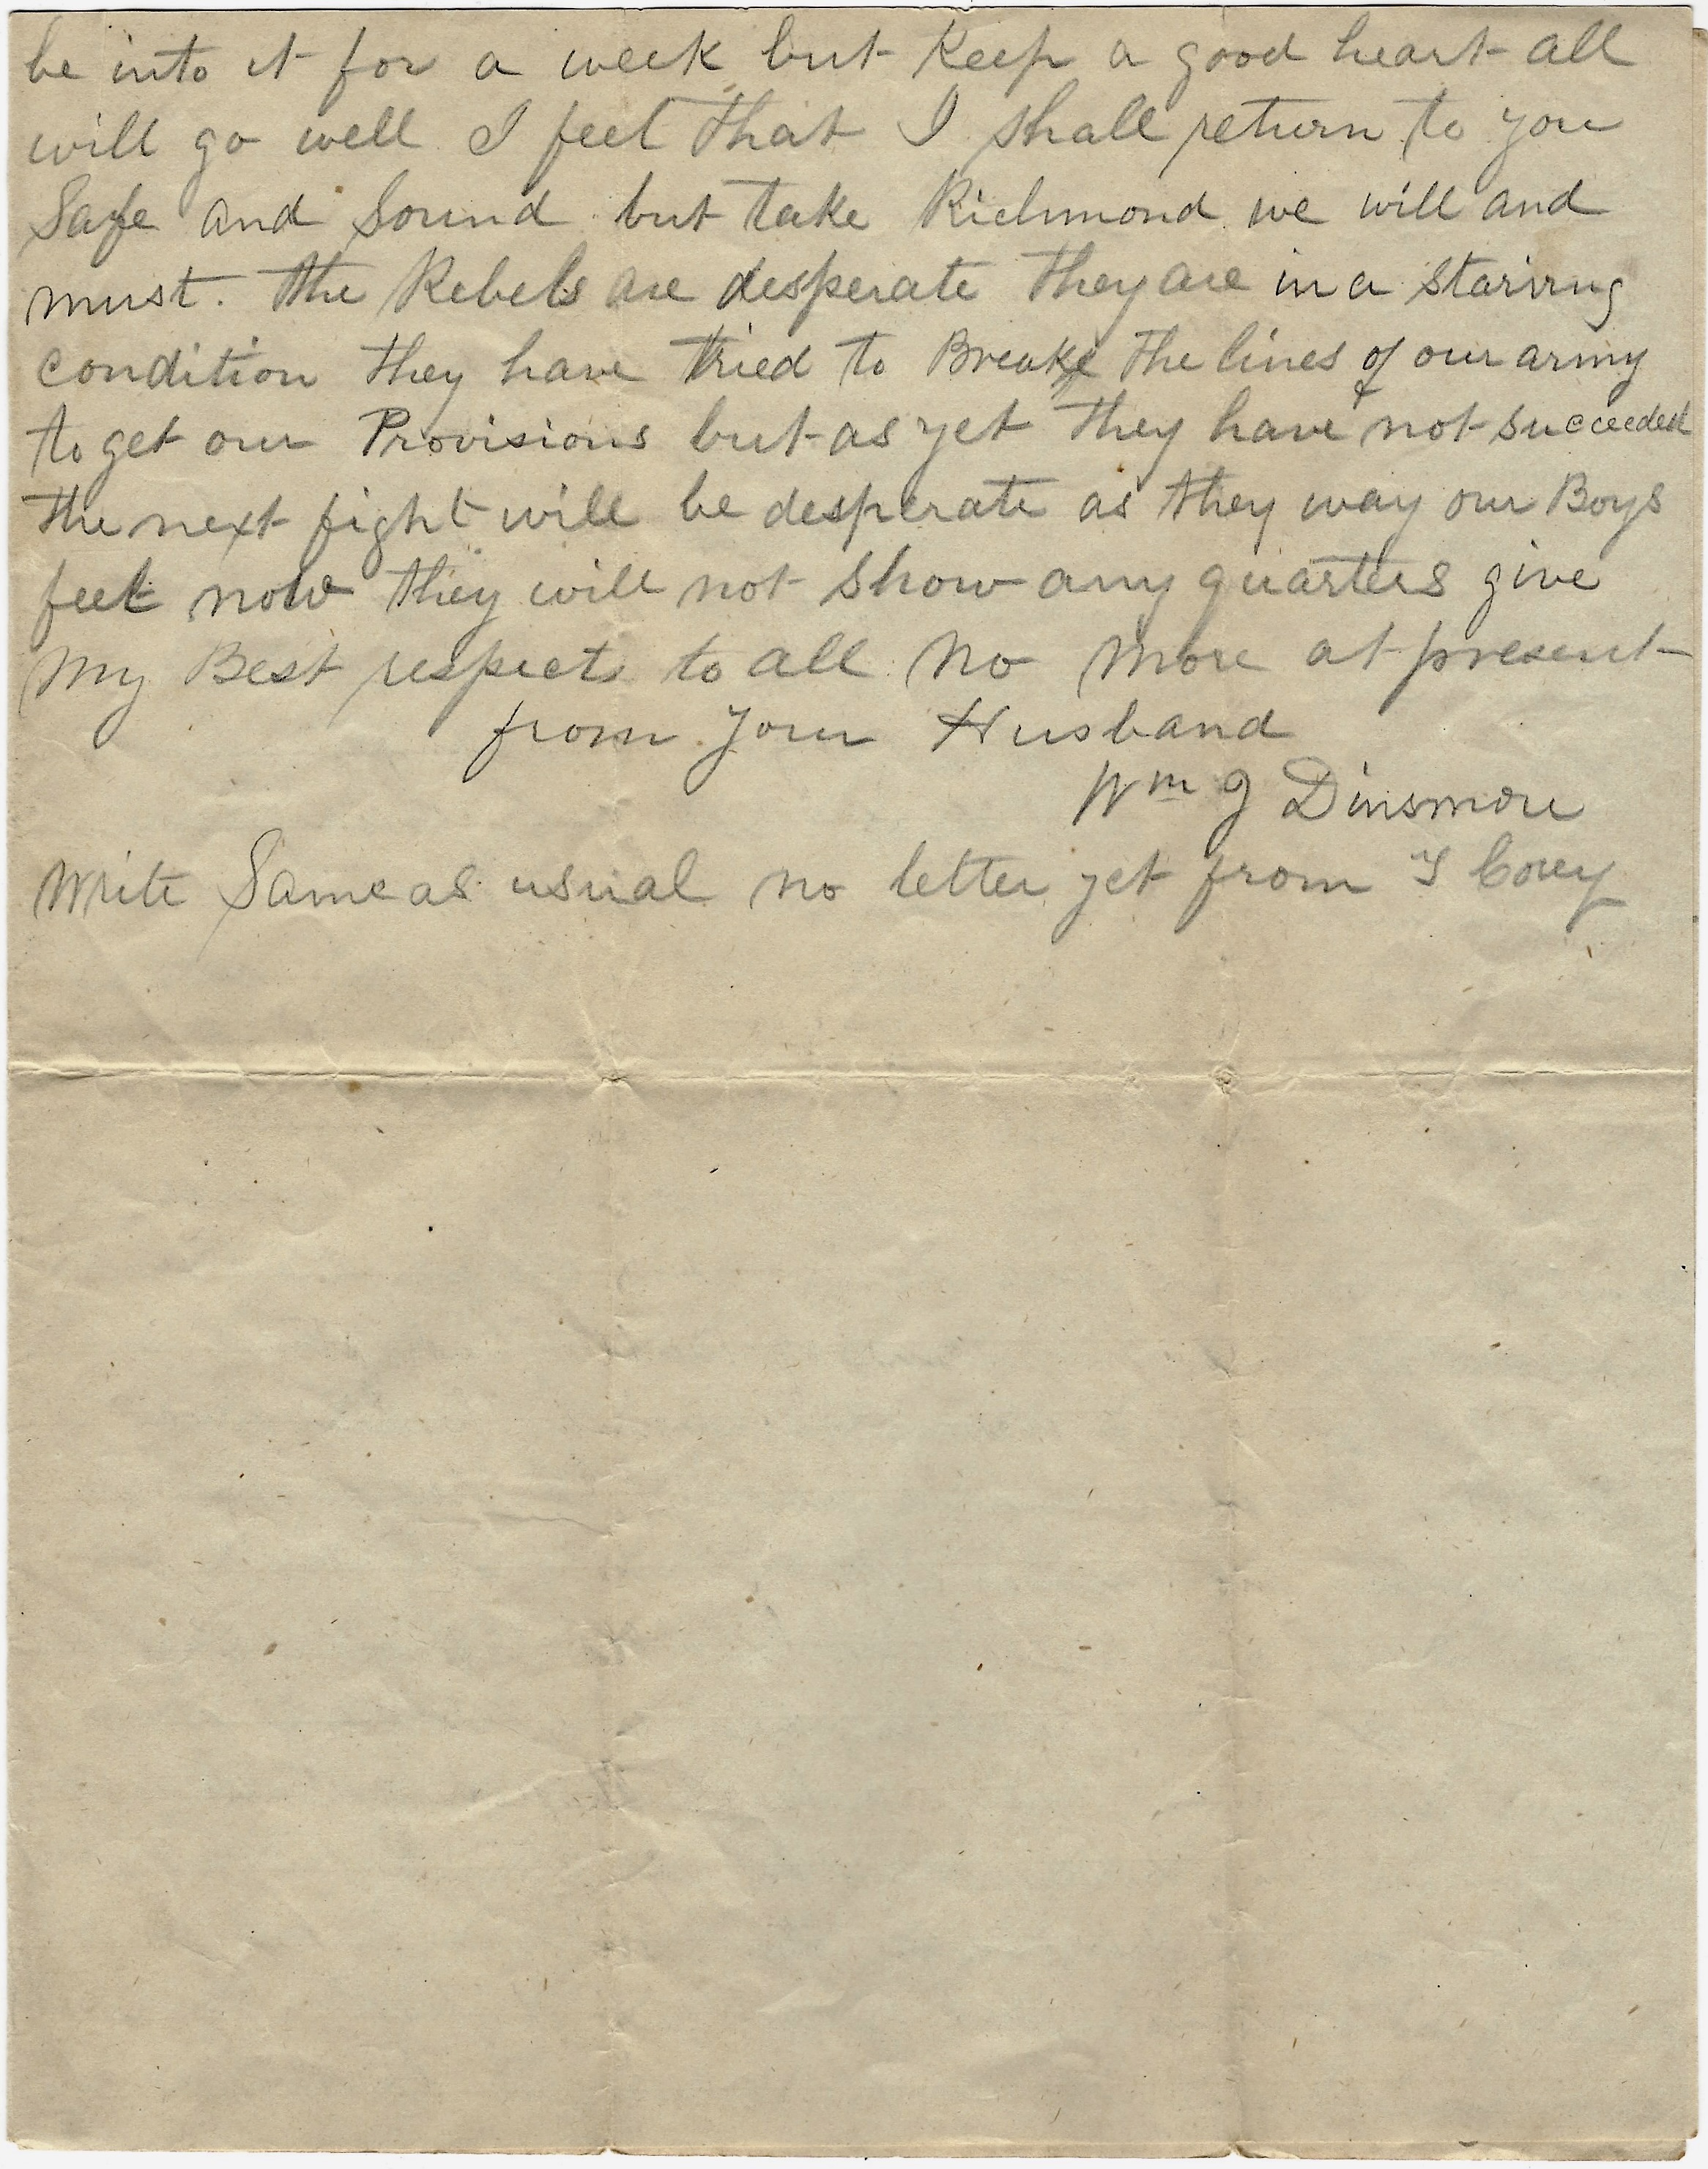 be into it for a week but Keep a good heart all
will go well I feel that I shall return to you
Safe and Sound but take Richmond we will and
must. the Rebels are desperate they are in a starving
condition they have tried to Breake the lines of our army
to get our Provisions but as yet they have not succeeded
the next fight will be desperate as they way our Boys
feel now they will not show any quarters give
My Best respects to all No more at present
from your Husband
Wm J Dinsmore
Write Same as usual no letter yet from Corey